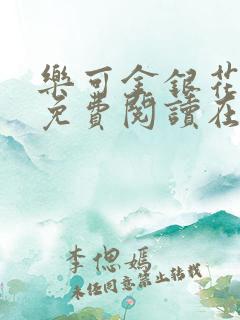 樂可金銀花
免費閱讀在
李偲嫣
未经同意禁止转载